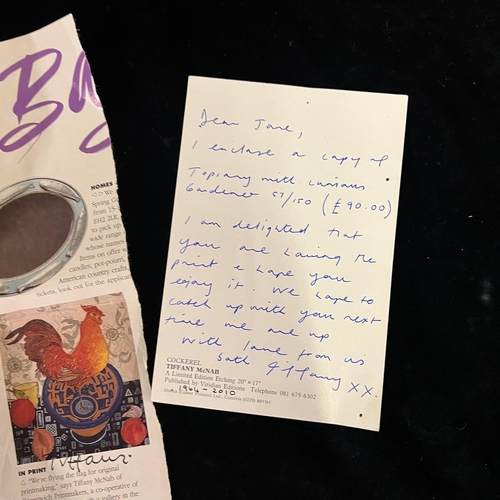 Ba
HOMES
We
Spring G
from 15-
EH2 2LR
to pick up
wide range
whose names
Items on offer
candles, pot-pourri,
American country craft
tickets, look out for the applica
IN PRINT
"We're flying the flag for original
printmaking," says Tiffany McNab of
Greenwich Printmakers, a co-operative of
gallery in the
Dear Jane,
I enclose a copy of
Topiary with curious
Gardener 57/150 (£90.00)
I am delighted that
you are having the
print & hope you
enjoy it. We hope to
catch up with you next
time we are up
With love from us
both Tiffany XX.
COCKEREL
TIFFANY McNAB
A Limited Edition Etching 20" × 17"
Published by Viridian Editions Telephone 081 675 6302
1964 - 2010
Printed Ltd., Cumbria